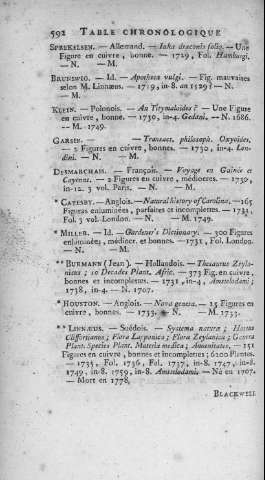 592 TABLE CHRONOLOGIQUE
SPREKALSEN. — Allemand. — draconis folio. — Une
Figure en cuivre, bonne. — 1719, Fol. Hamburgi.
— N. — M.
BRUNSWIG. — Id. — Apotheca vulgi. — Fig. mauvaises
selon M. Linnæus. — 1719, in-8. an 1529? — N.
— M.
KLEIN. — Polonois. — An Tithymaloides? — Une Figure
en cuivre, bonne. — 1730, in-4. Gedani. — N. 1686.
— M. 1749.
GARSIN. — — Transact. philosoph. Oxyoides.
— 2 Figures en cuivre, bonnes. — 1730, in-4. Lon-
dini. — N. — M.
DESMARCHAIS. — François. — Voyage en Guinée et
Cayenne. — 2 Figures en cuivre, médiocres. — 1730,
in-12. 3 vol. Paris. — N. — M.
* CATESBY. — Anglois. — Natural history of Carolina. — 165
Figures enluminées, parfaites et incomplettes. — 1731,
Fol. 3 vol. London. — N. — M. 1749.
* MILLER. — Id. — Gardener's Dictionary. — 300 Figures
enluminées, médiocr. et bonnes. — 1731, Fol. London.
— N. — M.
** BURMANN (Jean). — Hollandois. — Thesaurus Zeyla-
nicus; 10 Decades Plant. Afric. — 373 Fig. en cuivre,
bonnes et incomplettes. — 1731, in-4, Amstelodami;
1738, in-4. — N. 1707.
* HOUSTON. — Anglois. — Nova genera. — 15 Figures
en cuivre, bonnes. — 1733. — N. — M. 1733.
** LINNÆUS. — Suédois. — Systema naturæ; Hortus
Cliffortianus; Flora Lapponica; Flora Zeylanica; Genera
Plant. Species Plant. Materia medica; Amœnitates, — 151
Figures en cuivre, bonnes et incomplettes; 6200 Plantes.
— 1735, Fol. 1736, Fol. 1737, in-8. 1747, in-8.
1749, in-8. 1759, in-8. Amstelodami. — Né en 1707.
— Mort en 1778.
BLACKWELL